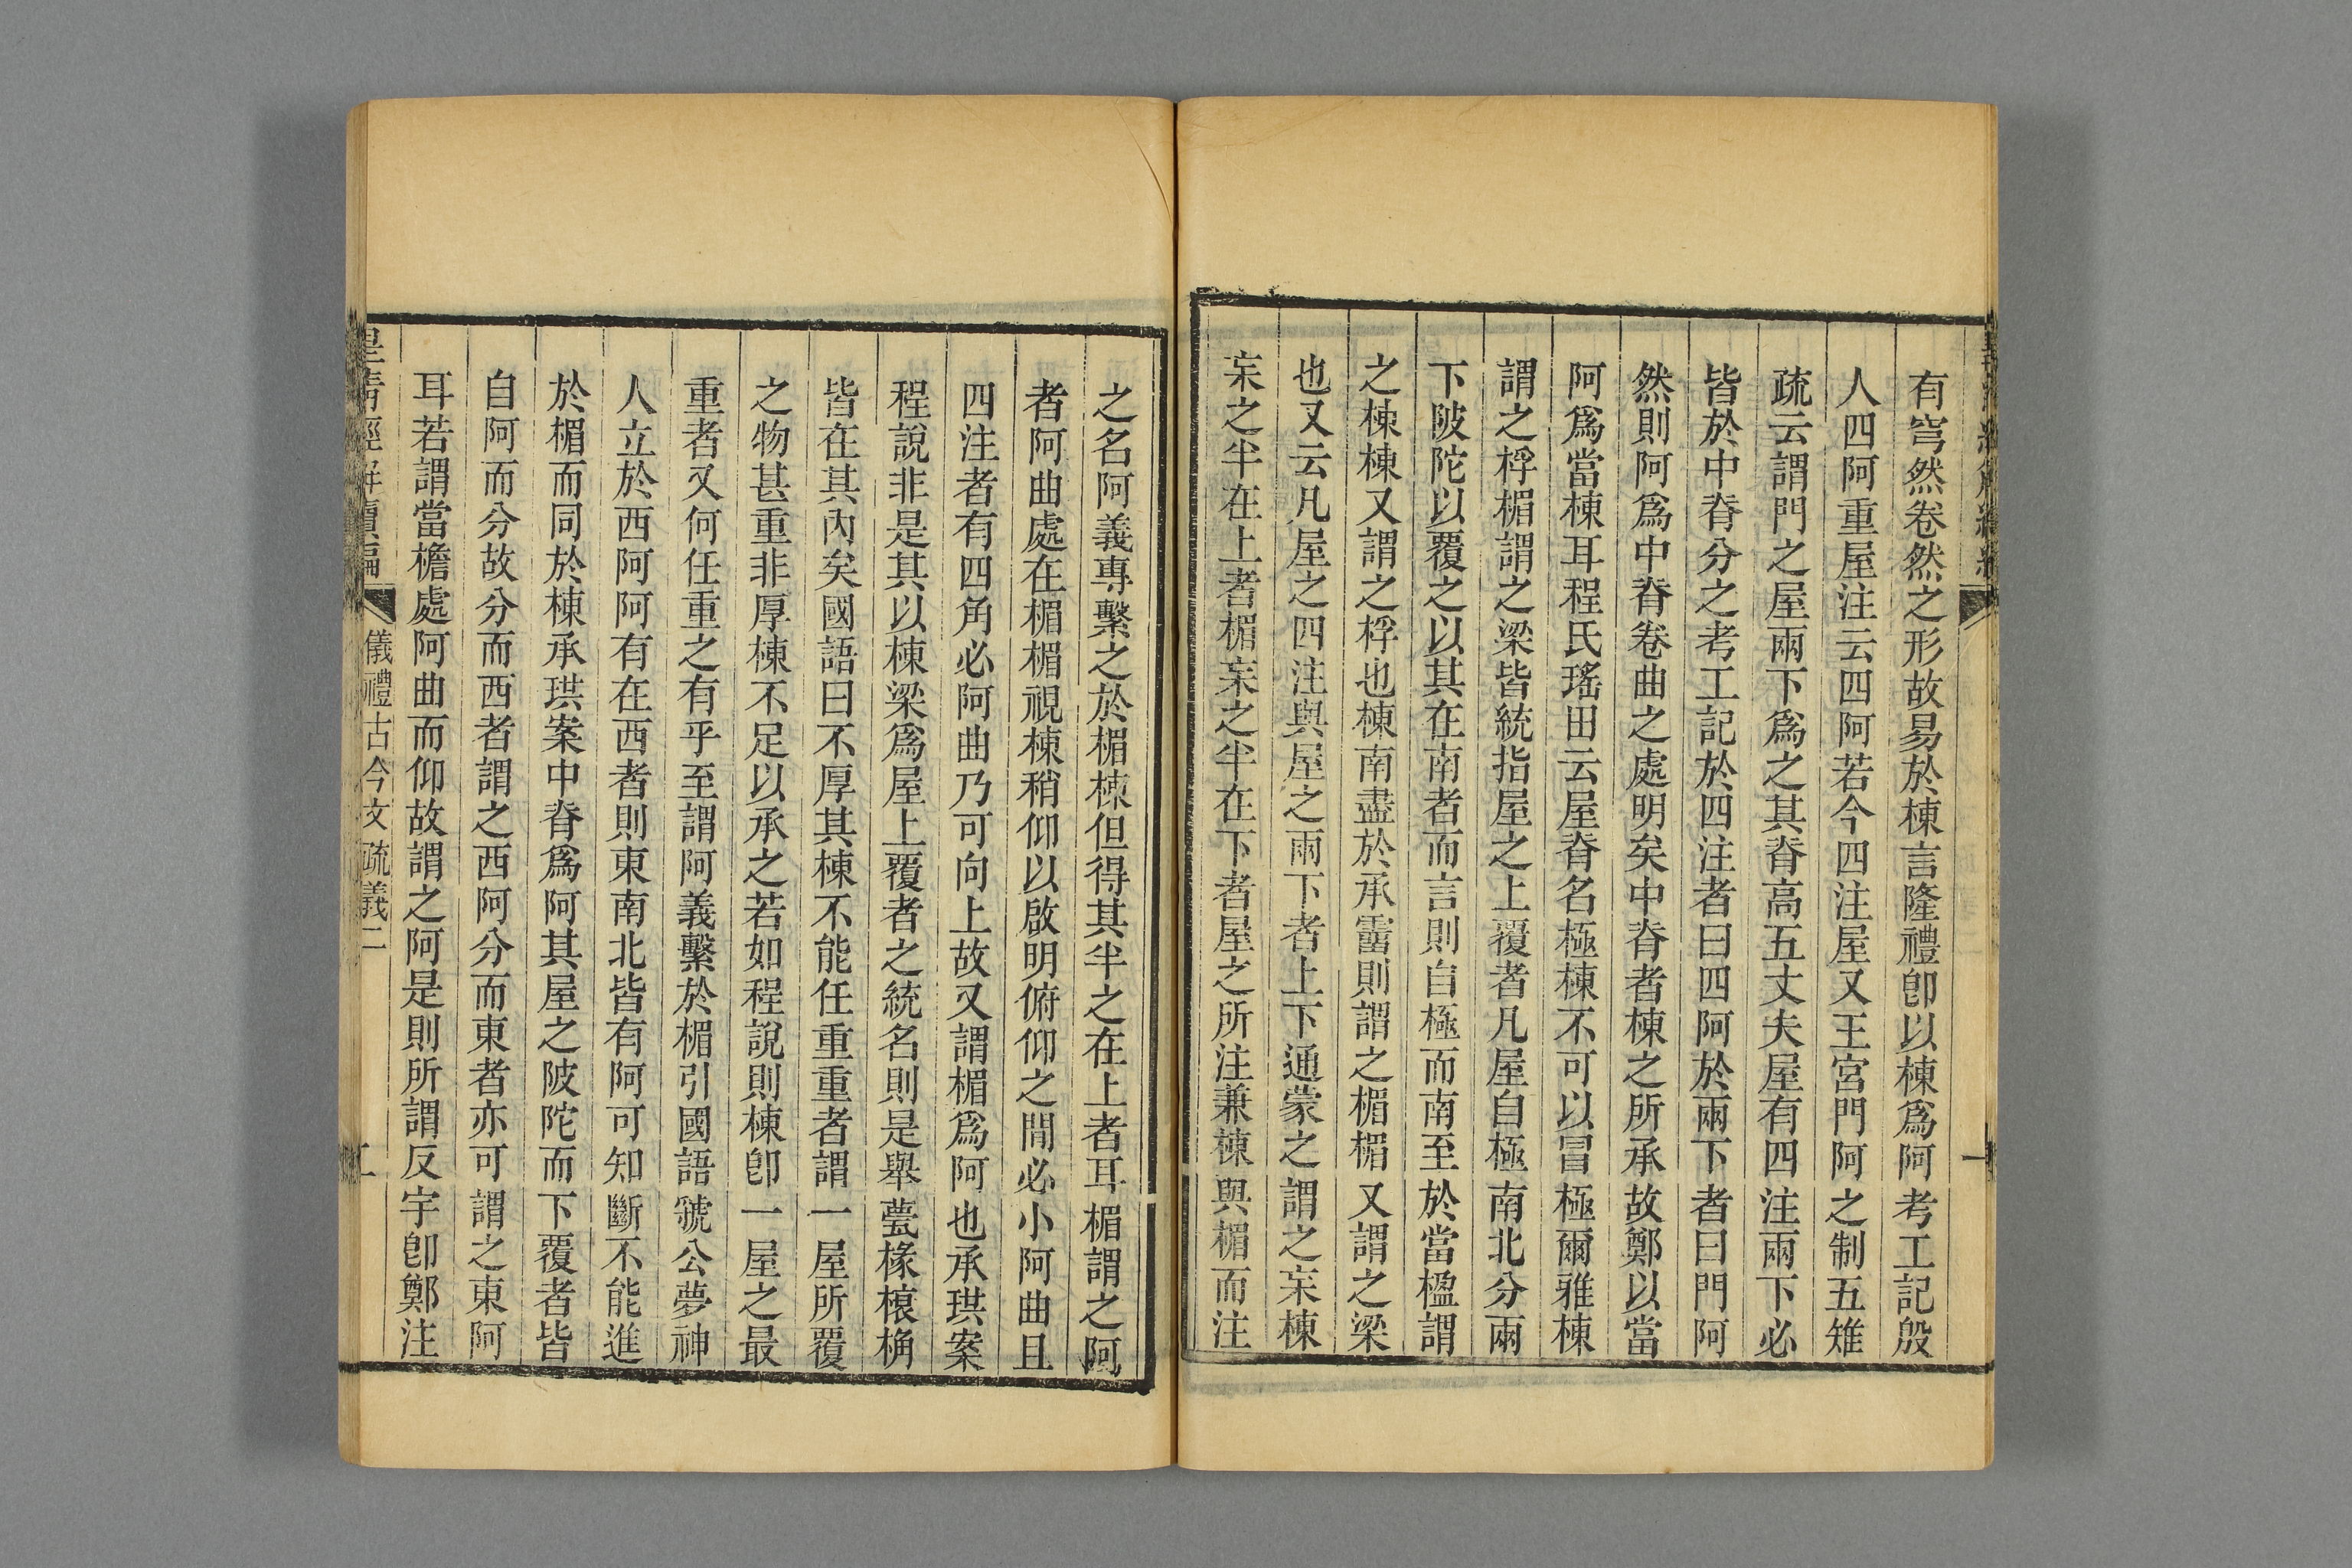 有穹然卷然之形故易於棟言隆禮卽以棟爲阿考工記殷
人四阿重屋注云四阿若今四注屋又王宮門阿之制五雉
疏云謂門之屋兩下爲之其脊高五丈夫屋有四注兩下必
皆於中脊分之考工記於四注者曰四阿於兩下者曰門阿
然則阿爲中脊卷曲之處明矣中脊者棟之所承故鄭以當
阿爲當棟耳程氏瑤田云屋脊名極棟不可以冒極爾雅棟
謂之桴楣謂之梁皆統指屋之上覆者凡屋自極南北分兩
下陂陀以覆之以其在南者而言則自極而南至於當楹謂
之棟棟又謂之桴也棟南盡於承霤則謂之楣楣又謂之梁
也又云凡屋之四注與屋之兩下者上下通蒙之謂之宩棟
宩之半在上者楣宩之半在下者屋之所注兼棟與楣而注
之名阿義專繫之於楣棟但得其半之在上者耳楣謂之阿
者阿曲處在楣楣視棟稍仰以啟明俯仰之閒必小阿曲且
四注者有四角必阿曲乃可向上故又謂楣爲阿也承珙案
程說非是其以棟梁爲屋上覆者之統名則是舉甍椽榱桷
皆在其內矣國語曰不厚其棟不能任重重者謂一屋所覆
之物甚重非厚棟不足以承之若如程說則棟卽一屋之最
重者又何任重之有乎至謂阿義繫於楣引國語虢公夢神
人立於西阿阿有在西者則東南北皆有阿可知斷不能進
於楣而同於棟承珙案中脊爲阿其屋之陂陀而下覆者皆
自阿而分故分而西者謂之西阿分而東者亦可謂之東阿
耳若謂當檐處阿曲而仰故謂之阿是則所謂反宇卽鄭注
皇清經解續編
儀禮古今文疏義二